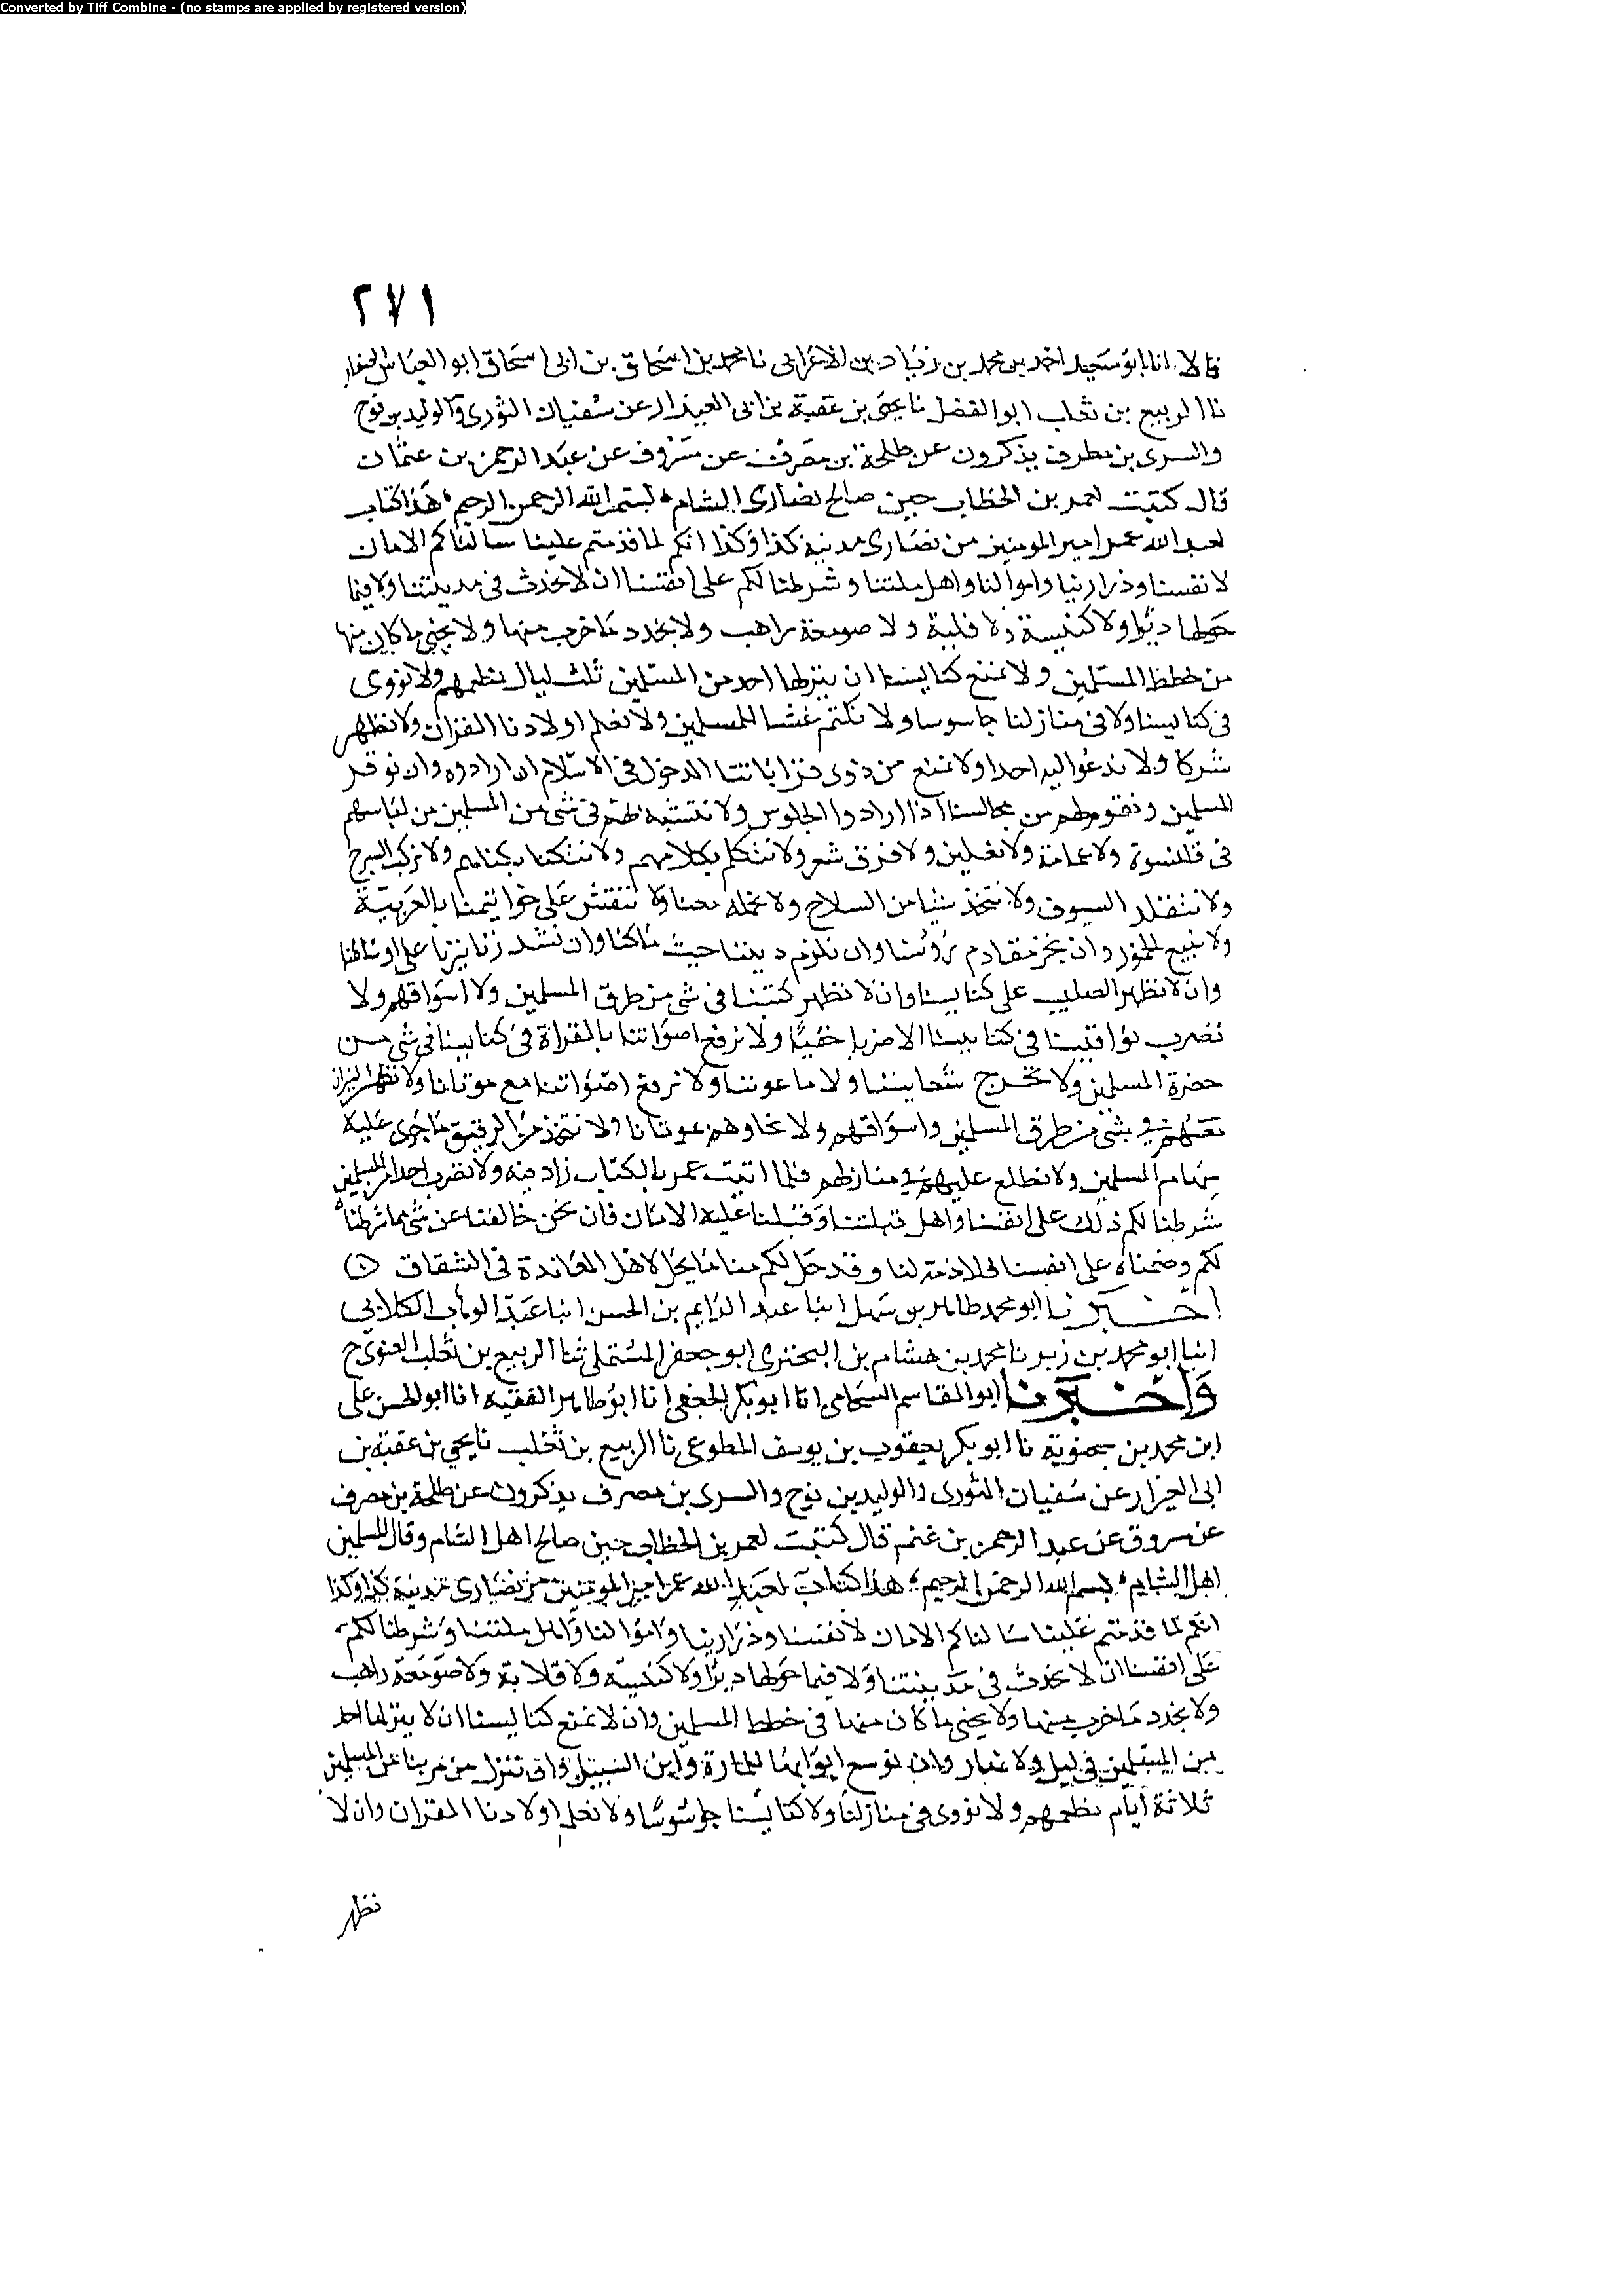 Converted by Tiff Combine - (no stamps are applied by registered version)
٢٧١
قالا انا ابو سعيد احمد بن محمد بن زياد بن الاعرابى نا محمد بن اسحاق بن ابى اسحاق ابو العباس الصفار
نا الربيع بن ثعلب ابو الفضل نا يحيى بن عقبة بن ابى العيزار عن سفيان الثورى والوليد بن نوح
والسرى بن مطرف يذكرون عن طلحة بن مصرف عن مسروق عن عبد الرحمن بن عثمان
قال كتبت لعمر بن الخطاب حين صالح نصارى الشام بسم الله الرحمن الرحيم هذا كتاب
لعبد الله عمر امير المومنين من نصارى مدينة كذا وكذا انكم لما قدمتم علينا سالناكم الامان
لانفسنا وذرارينا واموالنا واهل ملتنا وشرطنا لكم على انفسنا ان لا نحدث فى مدينتنا ولا فيما
حولها ديرا ولا كنيسة ولا قلية ولا صومعة راهب ولا نجدد ما خرب منها ولا نحيى ما كان منها
من خطط المسلمين ولا نمنع كنايسنا ان ينزلها احد من المسلمين ثلث ليال نطعمهم ولا نووى
فى كنايسنا ولا فى منازلنا جاسوسا ولا نكتم غشا للمسلمين ولا نعلم اولادنا القران ولا نظهر
شركا ولا ندعوا اليه احدا ولا نمنع من ذوى قراباتنا الدخول فى الاسلام ان ارادوه وان نوقر
المسلمين ونقوم لهم من مجالسنا اذا ارادوا الجلوس ولا نتشبه بهم فى شى من المسلمين من لباسهم
فى قلنسوة ولا عمامة ولا نعلين ولا فرق شعر ولا نتكلم بكلامهم ولا نتكنا بكناهم ولا نركب السرج
ولا نتقلد السيوف ولا نتخذ شيا من السلاح ولا نحمله معنا ولا ننقش على خواتيمنا بالعربية
ولا نبيع الخمور وان نجز مقادم رؤسنا وان نلزم ديننا حيث ما كنا وان نشد زنانيرنا على اوساطنا
وان لا نظهر الصليب على كنايسنا وان لا نظهر كتبنا فى شى من طرق المسلمين ولا اسواقهم ولا
نضرب نواقيسنا فى كنايسنا الا ضربا خفيا ولا نرفع اصواتنا بالقراة فى كنايسنا فى شى من
حضرة المسلمين ولا نخرج شعانيننا ولا باعوثنا ولا نرفع اصواتنا مع موتانا ولا نظهر النيران
معهم فى شى من طرق المسلمين واسواقهم ولا نجاوهم موتانا ولا نتخذ من الرقيق ما جرى عليه
سهام المسلمين ولا نطلع عليهم فى منازلهم فلما اتيت عمر بالكتاب زاد فيه ولا نضرب احدا من المسلمين
شرطنا لكم ذلك على انفسنا واهل قبلتنا وقبلنا عليه الامان فان نحن خالفنا عن شى مما شرطناه
لكم وضمناه على انفسنا فلا ذمة لنا وقد حل لكم منا ما يحل لاهل المعاندة فى الشقاق
اخبرنا ابو محمد طاهر بن سهل انبا عبد الدايم بن الحسن انبا عبد الوهاب الكلابى
انبا ابو محمد بن زبر نا محمد بن هشام بن البخترى ابو جعفر المستملى ثنا الربيع بن ثعلب الغنوى ح
واخبرنا ابو القاسم الشحامى انا ابو بكر انا ابو طاهر الفقيه انا ابو الحسن على
ابن محمد بن نا ابو بكر يعقوب بن يوسف المطوعى نا الربيع بن ثعلب نا يحيى بن عقبة بن
ابى العيزار عن سفيان الثورى والوليد بن نوح والسرى بن مصرف يذكرون عن طلحة بن مصرف
عن مسروق عن عبد الرحمن بن غنم قال كتبت لعمر بن الخطاب حين صالح اهل الشام وقال للمسلمين
اهل الشام بسم الله الرحمن الرحيم هذا كتاب لعبد الله عمر امير المومنين من نصارى مدينة كذا وكذا
انكم لما قدمتم علينا سالناكم الامان لانفسنا وذرارينا واموالنا واهل ملتنا وشرطنا لكم
على انفسنا ان لا نحدث فى مدينتنا ولا فيما حولها ديرا ولا كنيسة ولا قلاية ولا صومعة راهب
ولا نجدد ما خرب منها ولا نحيى ما كان منها فى خطط المسلمين وان لا نمنع كنايسنا ان لا ينزلها احد
من المسلمين فى ليل ولا نهار وان نوسع ابوابها للمارة وابن السبيل وان ننزل من مر بنا من المسلمين
ثلاثة ايام نطعمهم ولا نووى فى منازلنا ولا كنايسنا جاسوسا ولا نعلم اولادنا القران وان لا
نظهر